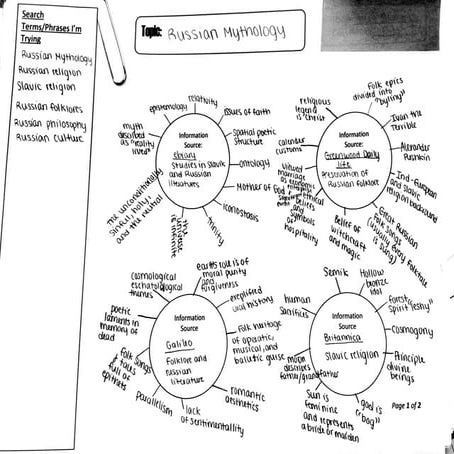 Search
Terms/Phrases I'm
Trying
Russian Mythology
Russian religion
Slavic religion
Russian folklores
Russian philosophy
Russian culture
Topic: Russian Mythology
relativity
epistemology
issues of faith
myth
described
as "reality
lived"
Spatial poetic
structure
ontology
Mother of God
iconostasis
trinity
the unconditionally
sinful, holy,
and the neutral
Information
Source:
ebrary
Studies in Slavic
and Russian
literatures
Folk epics
divided into
"byliny"
religious
legend
is "Christ"
Ivan the
Terrible
calender
customs
Alexander
Pushkin
viewed
marriage
as economic
Ind-European
and Slavic
religion background
beliefs
and
symbols
of
hospitality
Great Russian
Folk songs
(usually every folktale
is sung)
Belief of
witchcraft
and magic
Information
Source:
Greenwood Daily
life
Preservation of
Russian folklore
cosmological
eschatological
themes
earth's role is of
moral purity
and
forgiveness
exeplified
oral history
poetic
laments in
memory of
dead
Folk heritage
of opisotic,
musical, and
balletic guise
folk songs
& tales
full of
epithets
parallelism
lack
of sentimentallity
romantic
aesthetics
Information
Source
Galileo
Folklore and
russian
literature
Semik
Hollow
bronze
idol
human
sacrifices
forest
spirit "leshy"
Cosmogony
Principle
divine
beings
moon
describes
father/grandfather
Sun is
feminine
and represents
a bride or maiden
god is
"bog"
Information
Source:
Britannica
Slavic religion
Page 1 of 2